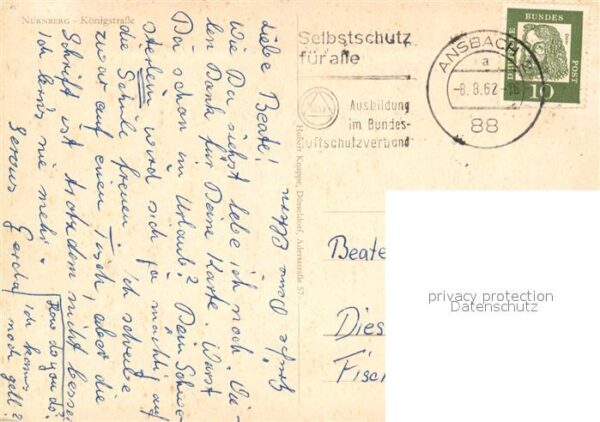 NÜRNBERG – Königstraße
Liebe Beate!
Wie Du siehst lebe ich noch. Vie-
len Dank für Deine Karte. Warst
Du schon im Urlaub? Dein Schwe-
sterlein wird sich ja mächtig auf
die Schule freuen. Ich schreibe
zwar auf einem Tisch, aber die
Schrift ist trotzdem nicht besser
Ich lern's nie mehr.
Servus
Gerda
How do you do?
Ich komme
noch gell?
Grüße Deine Eltern
Hubert Knuppe, Düsseldorf, Adersstraße 57
Selbstschutz
für alle
Ausbildung
im Bundes-
luftschutzverband
ANSBACH
a
-8.8.62-
88
DEUTSCHE BUNDES POST
10
Beate
Dies
Fisch
privacy protection
Datenschutz